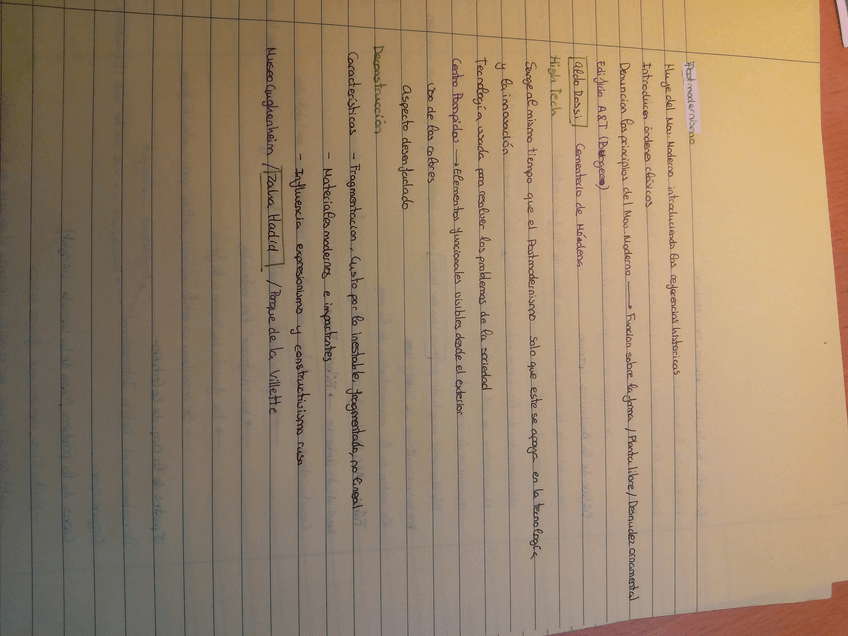 Postmodernismo
Huye del Mov. Moderno introduciendo las referencias historicas
Introducen órdenes clásicos
Denuncian los principios del Mov. Moderno → Función sobre la forma / Planta libre / Desnudez ornamental
Edificio A&T
Aldo Rossi Cementerio de Módena
High Tech
Surge al mismo tiempo que el Postmodernismo solo que este se apoya en la tecnología
y la innovación
Tecnología usada para resolver los problemas de la sociedad
Centro Pompidou → Elementos funcionales visibles desde el exterior
Uso de los colores
Aspecto desenfadado
Deconstrucción
Características - Fragmentación. Gusto por lo inestable, fragmentado, no lineal
- Materiales modernos e impactantes
- Influencia expresionismo y constructivismo ruso
Museo Guggenheim / Zaha Hadid / Parque de la Villette